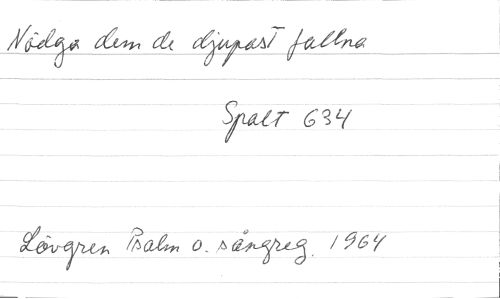 Nödga dem de djupast fallna
Spalt 634
Lövgren Psalm o. sångreg. 1964